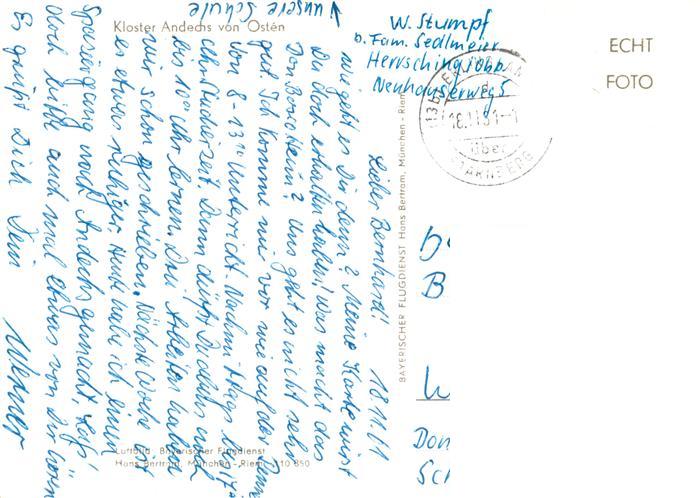 Kloster Andechs von Osten
↓ unsere Schule
W. Stumpf
b. Fam. Sedlmeier
Herrsching/Obb
Neuhauserweg 5
ECHT
FOTO
18.11.61
über
STARNBERG
18.11.61
Lieber Bernhard!
Wie geht es Dir denn? Meine Karte wirst
Du doch erhalten haben! Was macht das
Don Bosco Heim? Uns geht es nicht sehr
gut. Ich komme mir vor wie auf der Penne
Von 8 - 13¹⁰ Unterricht. Nachmittags bis 17³⁰
Uhr Studierzeit. Dann dürft Du abends noch
bis 10⁰⁰ Uhr lernen. Drei Arbeiten haben
wir schon geschrieben. Nächste Woche ist
es etwas ruhiger. Heute habe ich einen
Spaziergang nach Andechs gemacht. Laß'
doch bitte auch mal etwas von Dir hören
Es grüßt Dich Dein
Werner
BAYERISCHER FLUGDIENST Hans Bertram, München - Riem
B
Don
Sc
Luftbild Bayerischer Flugdienst
Hans Bertram, München - Riem 10 850